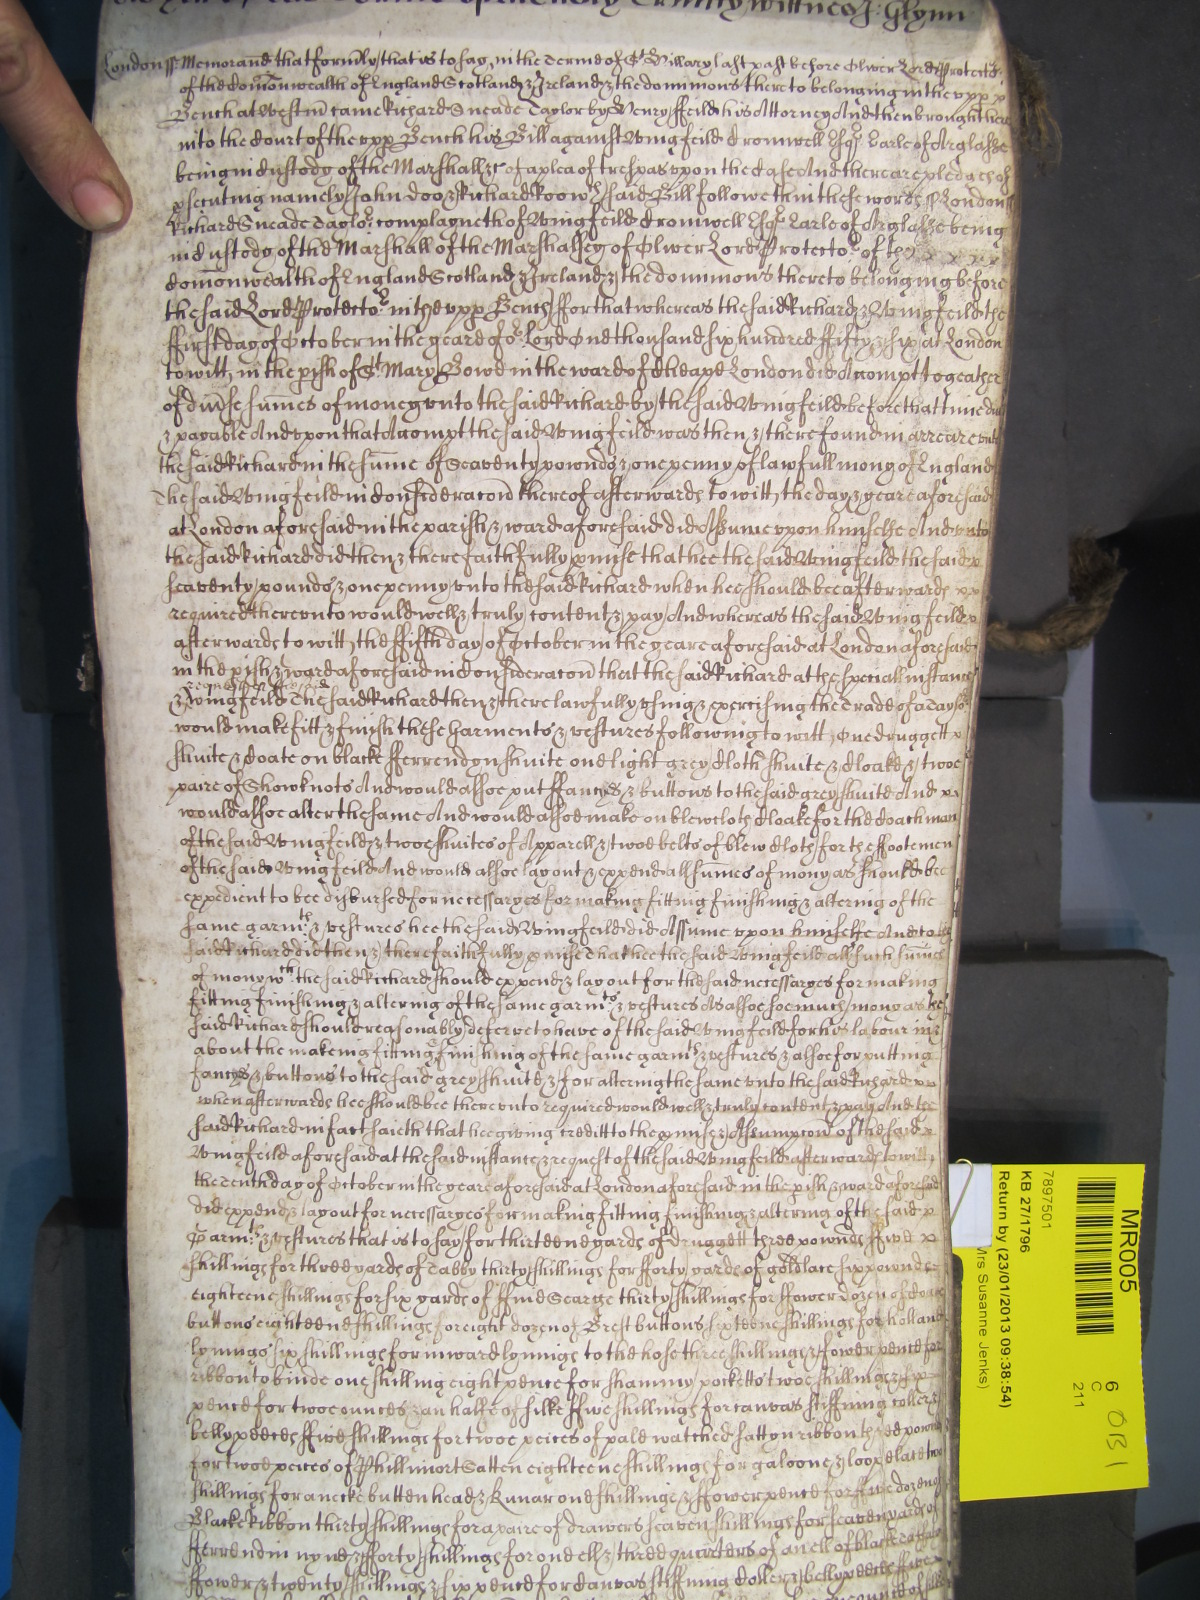 Trinity witnes J: Glynn
London ss Memorand that formly that is to say in the Terme of St Hillary last past before Oliver Lord Protector
of the Comonwealth of England Scotland & Ireland & the dominions thereto belonging in the upp
Bench at Westm came Richard Sneade Taylor by Henry Feild his Attorney And then brought here
into the Court of the upp Bench his Bill against Wingfeild Cromwell Esqr Earle of Arglasse
being in Custody of the Marshall &c of a plea of trespas upon the Case And there are pledges of
psecuting namely John Doo & Richard Roo wch said Bill followeth in these words ss London ss
Richard Sneade Taylor complayneth of Wingfeild Cromwell Esqr Earle of Arglasse being
in Custody of the Marshall of the Marshallsey of Oliver Lord Protector of the
Comonwealth of England Scotland & Ireland & the dominions thereto belonging before
the said Lord Protector in the upp Bench ffor that whereas the said Richard & Wingfeild the
ffirst day of October in the yeare of or Lord One thousand six hundred ffifty & six at London
to witt in the pish of St Mary Bowe in the ward of Cheape London did Accompt togeather
of divse sumes of money unto the said Richard by the said Wingfeild before that time due
& payable And upon that Accompt the said Wingfeild was then & there found in arreare unto
the said Richard in the sume of Seaventy pownds & one penny of lawfull mony of England
The said Wingfeild in Consideracon thereof afterwards to witt the day & yeare aforesaid
at London aforesaid in the parish & ward aforesaid did Assume upon himselfe And unto
the said Richard did then & there faithfully pmise that hee the said Wingfeild the said
seaventy pounds & one penny unto the said Richard when hee should bee afterwards
required thereunto would well & truly content & pay And whereas the said Wingfeild
afterwards to witt the ffifth day of October in the yeare aforesaid at London aforesaid
in the pish & ward aforesaid in Consideracon that the said Richard at the speciall instance
& Wingfeild The said Richard then & there lawfully using & exercising the Trade of a Taylor
would make fitt & finish these Garments & vestures following to witt One druggett
shuite & Coate one blacke fferrendon shuite one light grey Cloth shuite & Cloake & twoe
paire of Showknots And would alsoe put ffancyes & buttons to the said grey shuite And
would alsoe alter the same And would alsoe make one blew cloth Cloake for the Coachman
of the said Wingfeild & twoe shuites of Apparell & twoe belts of blew Cloth for the ffootemen
of the said Wingfeild And would alsoe lay out & expend all sumes of mony as should bee
expedient to bee disbursed for necessaryes for making fitting finishing & altering of the
same garmts & vestures hee the said Wingfeild did Assume upon himselfe And to the
said Richard did then & there faithfully pmise That hee the said Wingfeild all such sumes
of mony wch the said Richard should expend & lay out for the said necessaryes for making
fitting finishing & altering of the same garmts & vestures As alsoe soe much mony as the
said Richard should reasonably deserve to have of the said Wingfeild for his labour in &
about the making fitting finishing of the same garmts & vestures & alsoe for putting
fancyes & buttons to the said grey shuite & for altering the same unto the said Richard
when afterwards hee should bee thereunto required would well & truly content & pay And the
said Richard in fact saieth that hee giving creditt to the pmise & Assumpcon of the said
Wingfeild aforesaid at the said instance & request of the said Wingfeild afterwards to witt
the tenth day of October in the yeare aforesaid at London aforesaid in the pish & ward aforesaid
did expend & lay out for necessaryes for making fitting finishing & altering of the said
Garmts & vestures that is to say for thirteene yards of druggett three pownds ffive
shillings for three yards of Tabby thirty shillings for fforty yards of gold lace six pownds
eighteene shillings for six yards of ffine Searge thirty shillings for ffower dozen of Coate
buttons eighteene shillings for eight dozen of Brest buttons sixteene shillings for holland
lynings six shillings for inward lynings to the hose three shillings & ffower pence for
ribbon to binde one shilling eight pence for shammy pocketts twoe shillings & six
pence for twoe ounces & an halfe of silke ffive shillings for canvas stiffning coller &
belly peeces ffive shillings for twoe peices of pale watched sattyn ribbon three pownds
for twoe peices of Phillimort Satten eighteene shillings for galoone & loope lace two
shillings for a necke button head & Kunar one shilling & ffower pence for ffive dozen of
Blacke Ribbon thirty shillings for a paire of drawers seaven shillings for seaven yards of
fferrendin nyne & fforty shillings for one ell & three quarters of an ell of blacke
ffower & twenty shillings & six pence for Canvas stiffning Coller & belly peeces ffive
MR005
6
C
211
7897501
KB 27/1796
Return by (23/01/2013 09:38:54)
Mrs Susanne Jenks)